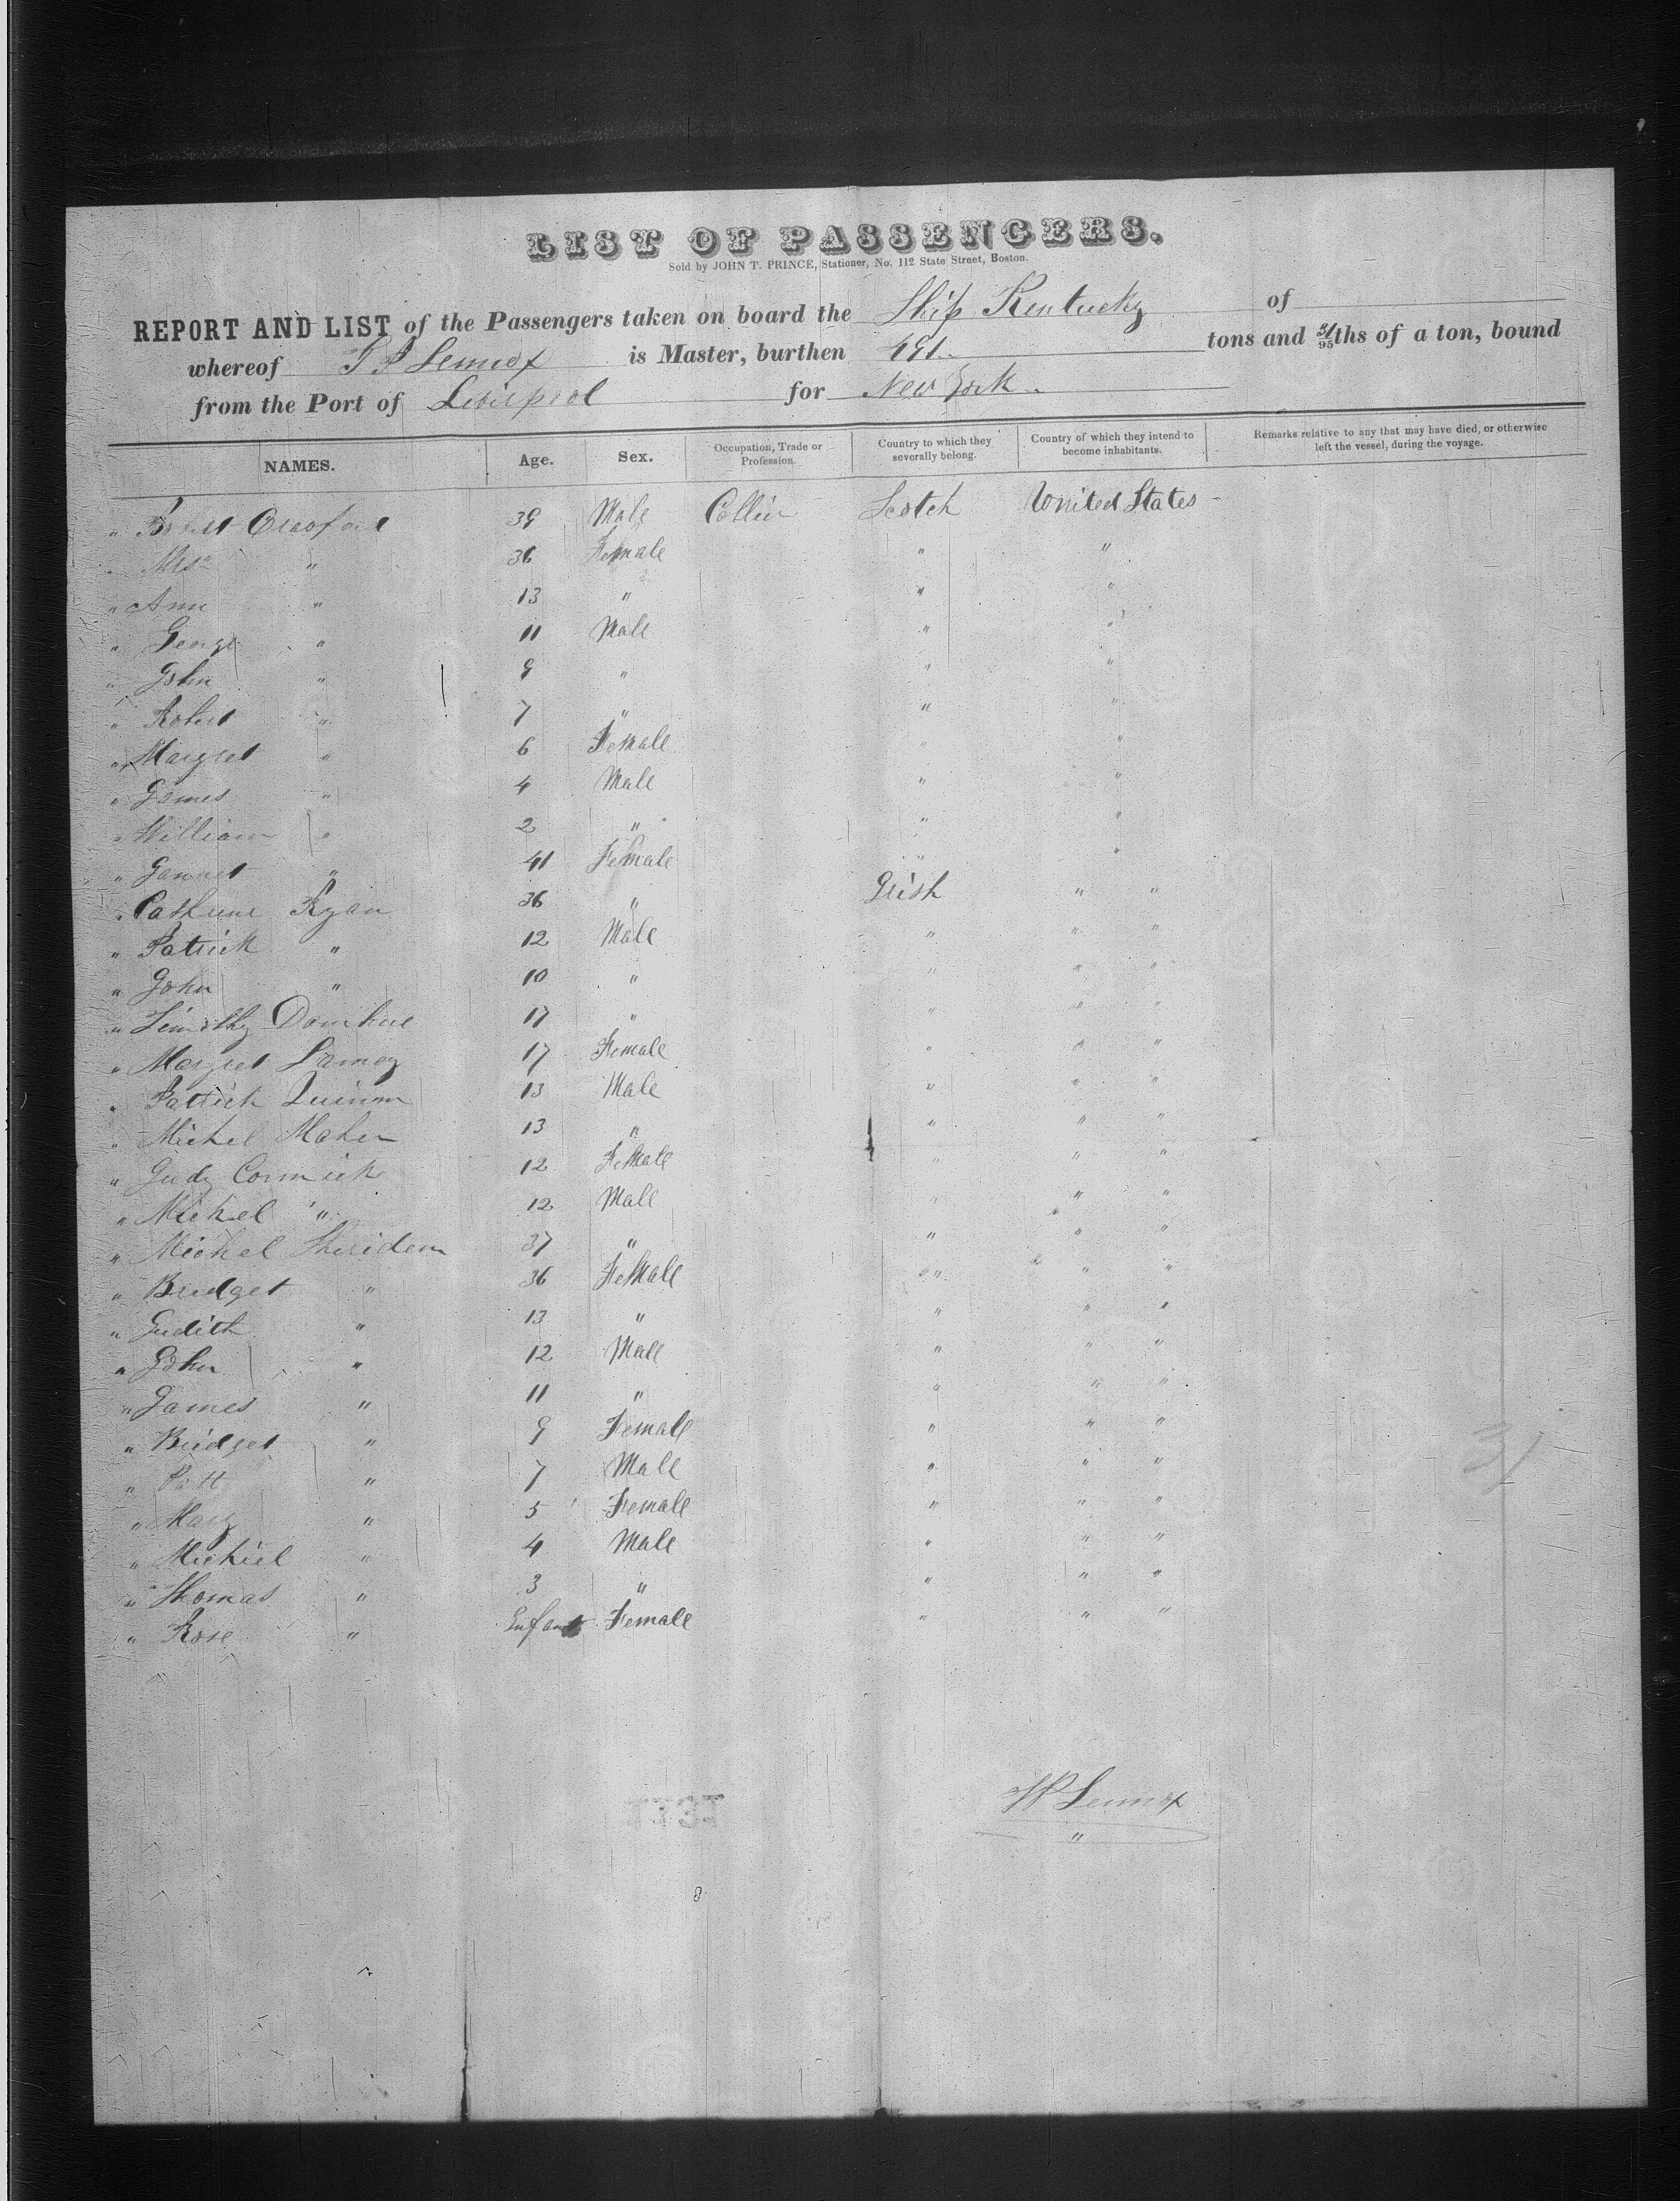 LIST OF PASSENGERS.
Sold by JOHN T. PRINCE, Stationer, No. 112 State Street, Boston.
REPORT AND LIST of the Passengers taken on board the Ship Kentucky of
whereof Lennox is Master, burthen 491 tons and /95ths of a ton, bound
from the Port of Liverpool for New York
NAMES. Age. Sex. Occupation, Trade or Profession. Country to which they severally belong. Country of which they intend to become inhabitants. Remarks relative to any that may have died, or otherwise left the vessel, during the voyage.
" Robert Crawford 39 Male Collier Scotch United States
" Mrs " 36 Female " "
" Ann " 13 " " "
" George " 11 Male " "
" John " 9 " " "
" Robert " 7 " " "
" Margret " 6 Female " "
" James " 4 Male " "
" William " 2 " " "
" Jannet " 41 Female " "
" Cathrine Ryan 36 " Irish " "
" Patrick " 12 Male " " "
" John " 10 " " " "
" Timothy Donahue 17 " " " "
" Margret 17 Female " " "
" Patrick 13 Male " " "
" Michel Maher 13 " " " "
" Judy Cormick 12 Female " " "
" Michel " 12 Male " " "
" Michel Sheriden 37 " " " "
" Bridget " 36 Female " " "
" Judith " 13 " " " "
" John " 12 Male " " "
" James " 11 " " " "
" Bridget " 9 Female " " "
" Patt " 7 Male " " "
" Mary " 5 Female " " "
" Michiel " 4 Male " " "
" Thomas " 3 " " " "
" Rose " Infant Female " " "
31
Lennox
"